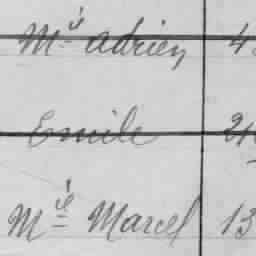 Mie Adrien 4
Emile
Mie Marcel 13